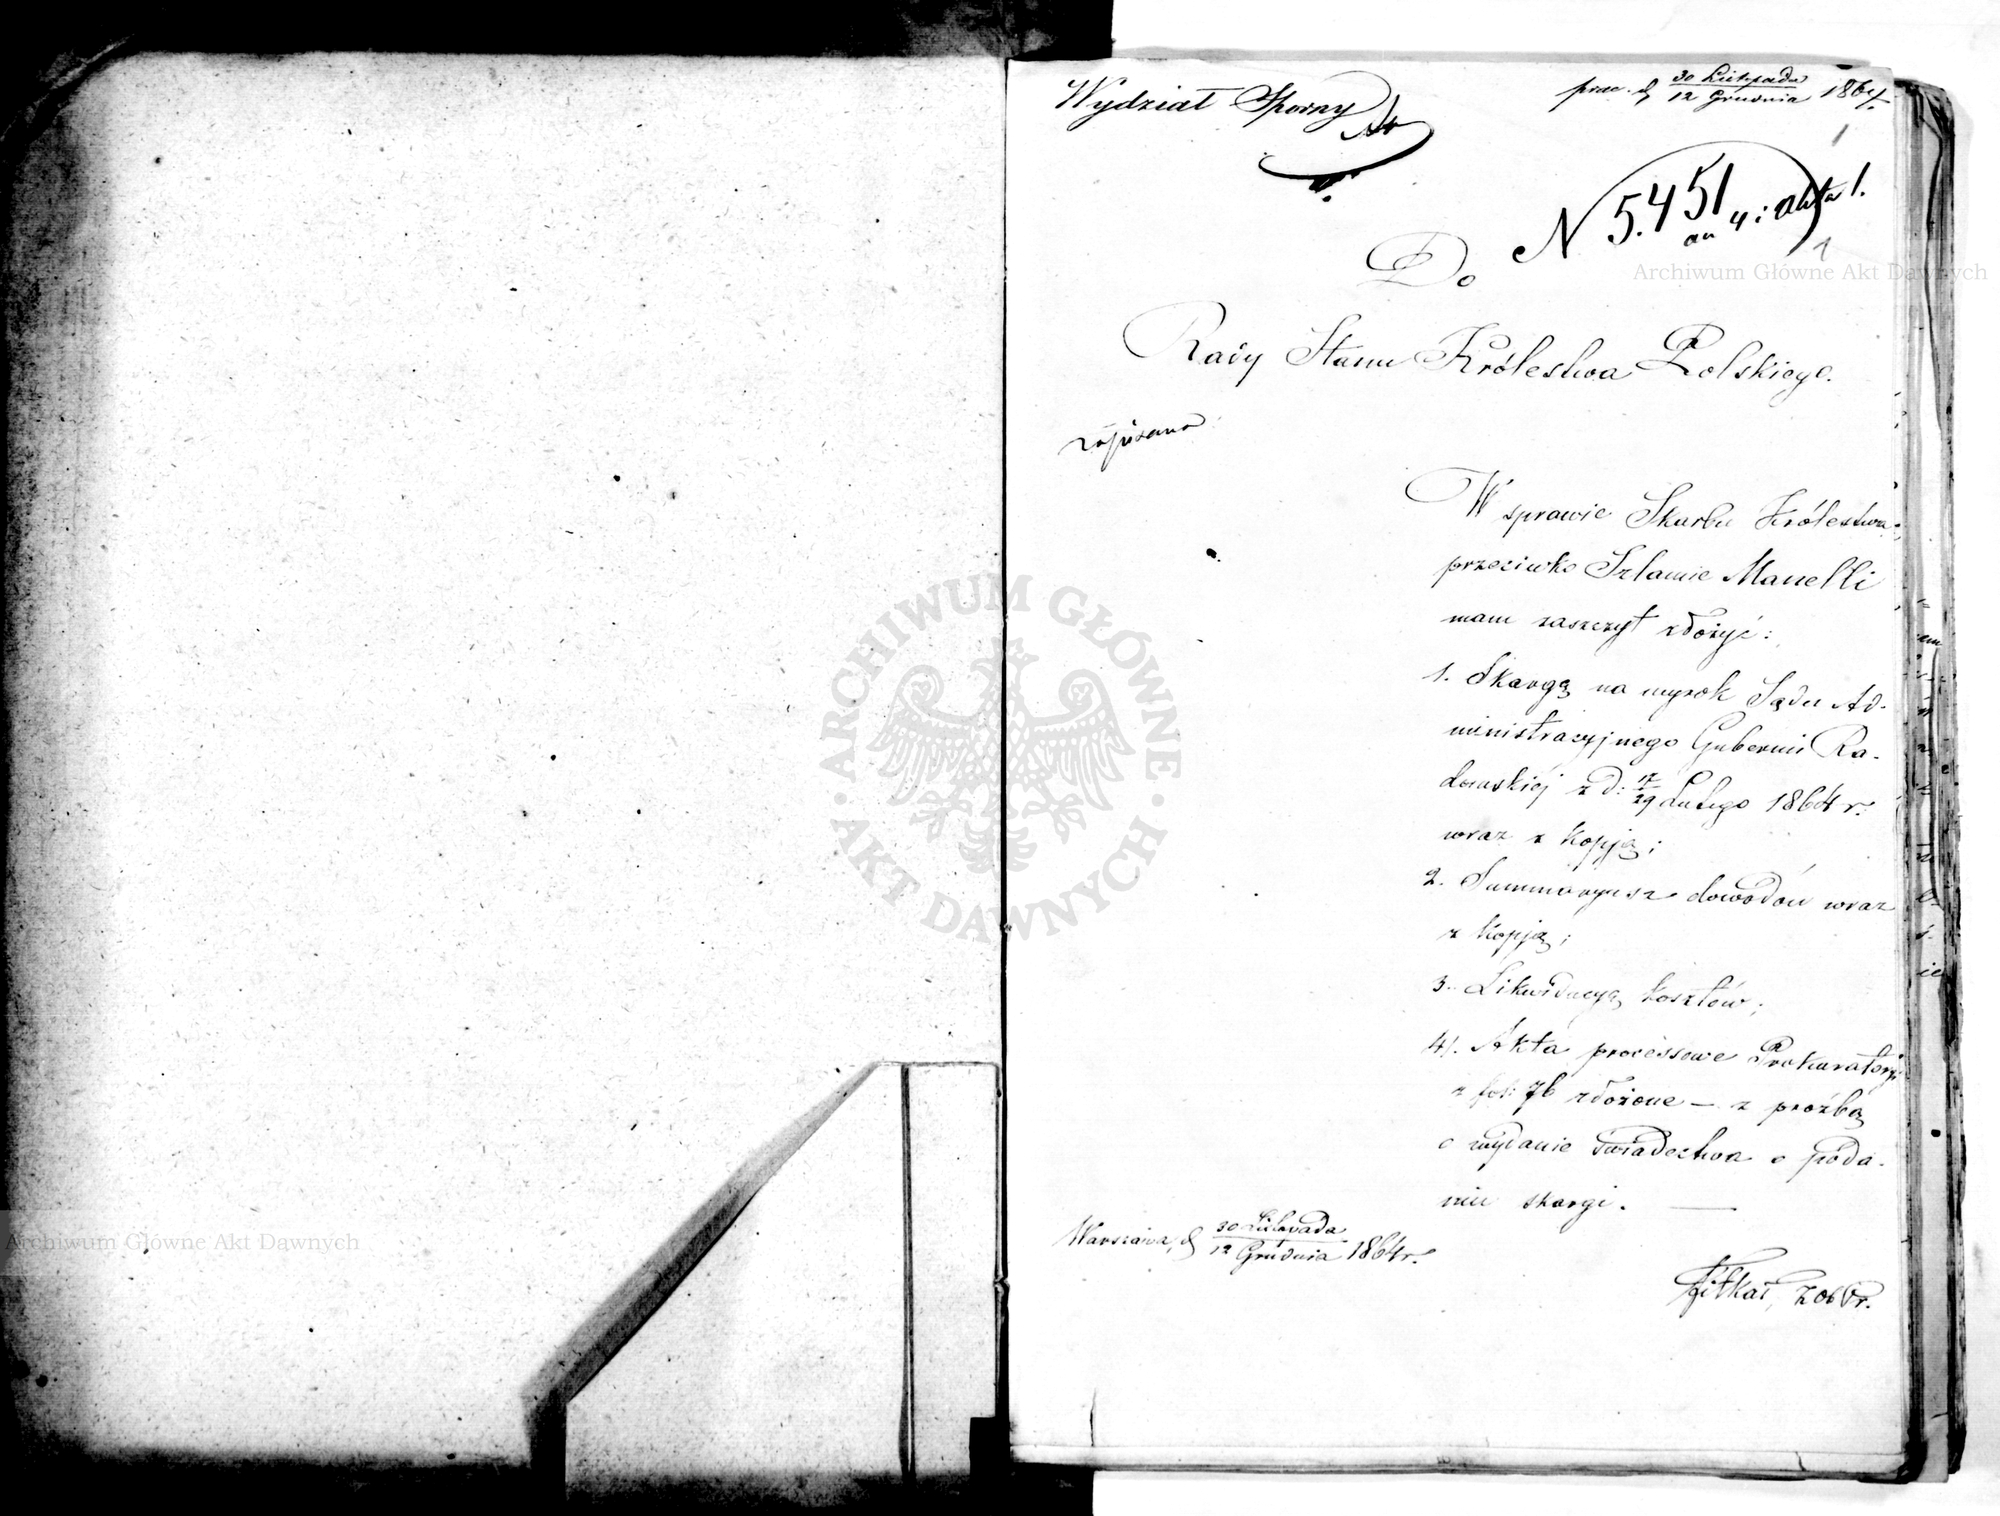 Wydział Sporny
prae. d. 30 Listopada 1864.
12 Grudnia
1
N 5.451
an 4 i akta 1.
1
Do
Rady Stanu Królestwa Polskiego.
zapisano
W sprawie Skarbu Królestwa
przeciwko Szlamie Manelli
mam zaszczyt złożyć:
1. Skargę na wyrok Sądu Ad-
ministracyjnego Gubernii Ra-
domskiéj z d: 17/29 Lutego 1864 r.
wraz z kopją;
2. Summaryusz dowodów wraz
z kopją;
3. Likwidacyą kosztów;
4. Akta processowe Prokuratoryi
z fol: 76 złożone — z proźbą
o wydanie świadectwa o poda-
niu skargi. —
Warszawa, d 30 Listopada 1864 r.
12 Grudnia
Archiwum Główne Akt Dawnych
ARCHIWUM GŁÓWNE
AKT DAWNYCH
Archiwum Główne Akt Dawnych